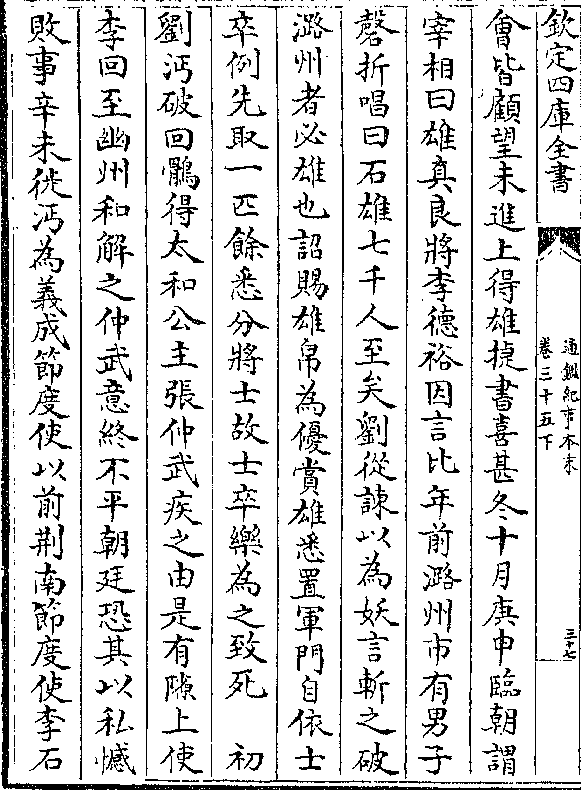 欽定四庫全書
通鑑紀事本末
卷三十五下
三十七
會皆顧望未進上得雄捷書喜甚冬十月庚申臨朝謂
宰相曰雄真良將李德裕因言比年前潞州市有男子
磬折唱曰石雄七千人至矣劉從諫以為妖言斬之破
潞州者必雄也詔賜雄帛為優賞雄悉置軍門自依士
卒例先取一匹餘悉分將士故士卒樂為之致死　初
劉沔破回鶻得太和公主張仲武疾之由是有隙上使
李回至幽州和解之仲武意終不平朝廷恐其以私憾
敗事辛未徙沔為義成節度使以前荆南節度使李石